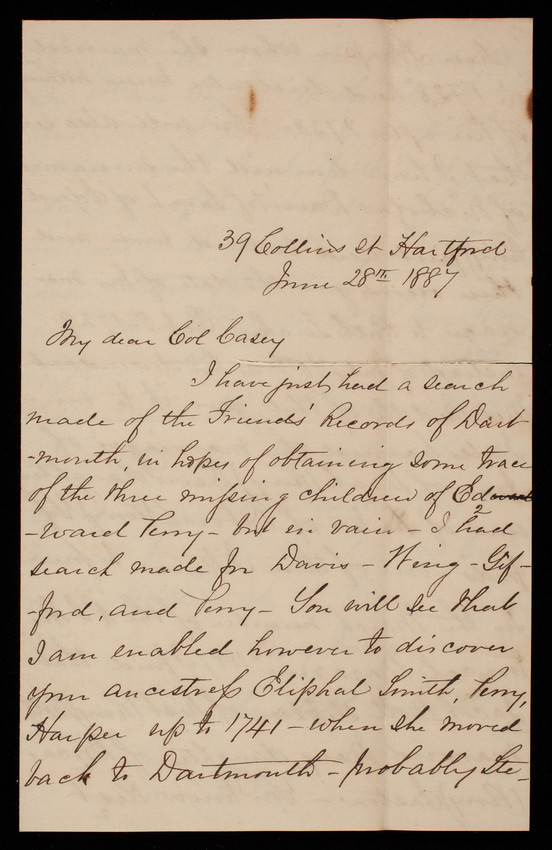 39 Collins St Hartford
June 28th 1887
My dear Col Casey
I have just had a search
made of the Friends' Records of Dart
-mouth, in hopes of obtaining some trace
of the three missing children of Ed
-ward Perry - but in vain - I had
search made for Davis - Wing - Gif-
-ford, and Perry - You will see that
I am enabled however to discover
your ancestress Eliphal Smith, Perry,
Harper up to 1741 - when she moved
back to Dartmouth - probably Ste-